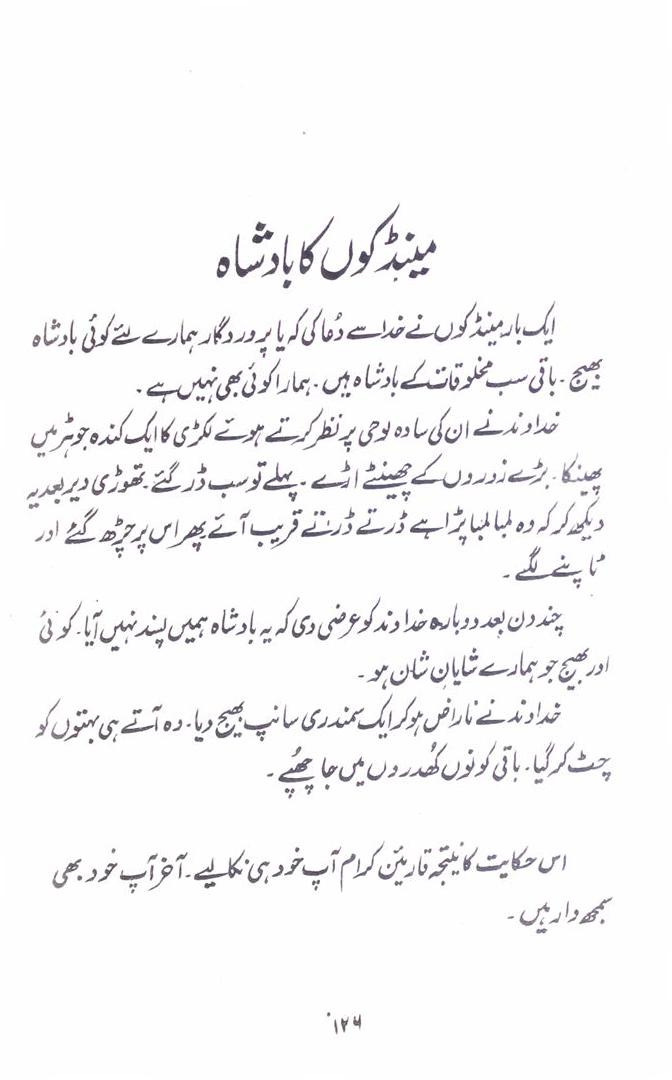 مینڈکوں کا بادشاہ
ایک بار مینڈکوں نے خدا سے دُعا کی کہ یا پروردگار ہمارے لئے کوئی بادشاہ
بھیج ۔ باقی سب مخلوقات کے بادشاہ ہیں ۔ ہمارا کوئی بھی نہیں ہے ۔
خداوند نے ان کی سادہ لوحی پر نظر کرتے ہوئے لکڑی کا ایک کندہ جوہڑ میں
پھینکا ۔ بڑے زوروں کے چھینٹے اڑے ۔ پہلے تو سب ڈر گئے ۔ تھوڑی دیر بعد یہ
دیکھ کر کہ وہ لمبا لمبا پڑا ہے ڈرتے ڈرتے قریب آئے پھر اس پر چڑھ گئے اور
ٹاپنے لگے ۔
چند دن بعد دوبارہ خداوند کو عرضی دی کہ یہ بادشاہ ہمیں پسند نہیں آیا ۔ کوئی
اور بھیج جو ہمارے شایانِ شان ہو ۔
خداوند نے ناراض ہو کر ایک سمندری سانپ بھیج دیا ۔ وہ آتے ہی بہتوں کو
چٹ کر گیا ۔ باقی کونوں کھُدروں میں جا چھُپے ۔
اس حکایت کا نتیجہ قارئین کرام آپ خود ہی نکالیے ۔ آخر آپ خود بھی
سمجھ دار ہیں ۔
۱۲۶